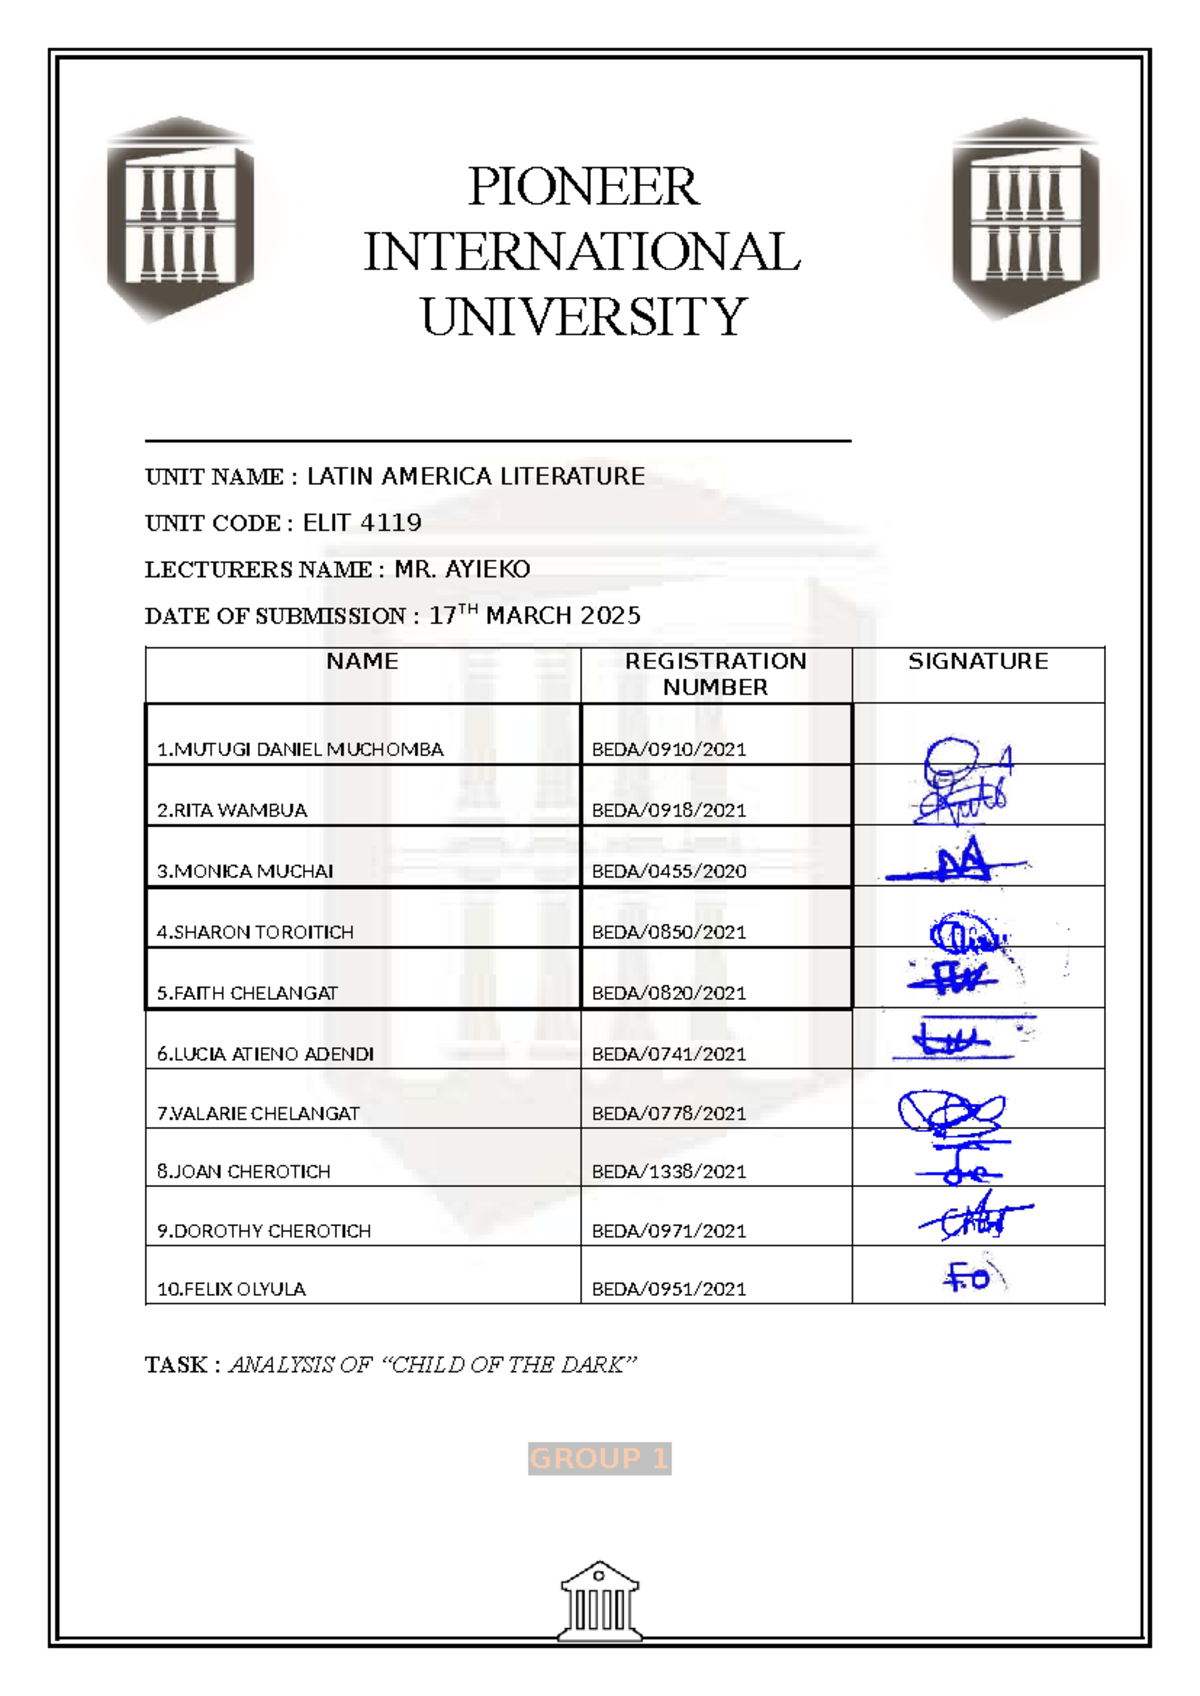 PIONEER
INTERNATIONAL
UNIVERSITY
UNIT NAME : LATIN AMERICA LITERATURE
UNIT CODE : ELIT 4119
LECTURERS NAME : MR. AYIEKO
DATE OF SUBMISSION : 17TH MARCH 2025
NAME REGISTRATION NUMBER SIGNATURE
1.MUTUGI DANIEL MUCHOMBA BEDA/0910/2021
2.RITA WAMBUA BEDA/0918/2021
3.MONICA MUCHAI BEDA/0455/2020
4.SHARON TOROITICH BEDA/0850/2021
5.FAITH CHELANGAT BEDA/0820/2021
6.LUCIA ATIENO ADENDI BEDA/0741/2021
7.VALARIE CHELANGAT BEDA/0778/2021
8.JOAN CHEROTICH BEDA/1338/2021
9.DOROTHY CHEROTICH BEDA/0971/2021
10.FELIX OLYULA BEDA/0951/2021 F.O
TASK : ANALYSIS OF “CHILD OF THE DARK”
GROUP 1